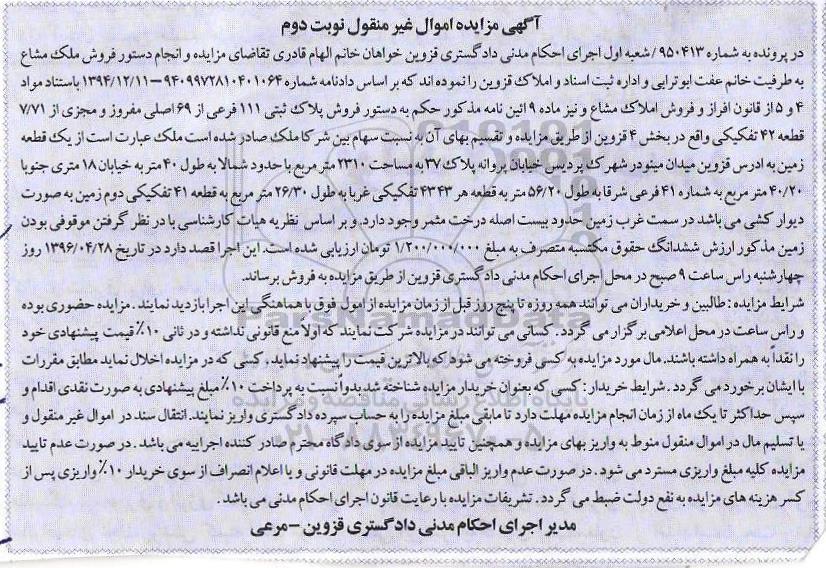 آگهی مزایده اموال غیر منقول نوبت دوم
در پرونده به شماره ۹۵۰۴۱۳/ شعبه اول اجرای احکام مدنی دادگستری قزوین خواهان خانم الهام قادری تقاضای مزایده و انجام دستور فروش ملک مشاع
به طرفیت خانم عفت ابوترابی و اداره ثبت اسناد و املاک قزوین را نموده اند که بر اساس دادنامه شماره ۹۴۰۹۹۷۲۸۱۰۴۰۱۰۶۴-۱۳۹۴/۱۲/۱۱ باستناد مواد
۴ و ۵ از قانون افراز و فروش املاک مشاع و نیز ماده ۹ ائین نامه مذکور حکم به دستور فروش پلاک ثبتی ۱۱۱ فرعی از ۶۹ اصلی مفروز و مجزی از ۷/۷۱
قطعه ۴۲ تفکیکی واقع در بخش ۴ قزوین از طریق مزایده و تقسیم بهای آن به نسبت سهام بین شرکا ملک صادر شده است ملک عبارت است از یک قطعه
زمین به ادرس قزوین میدان مینودر شهرک پردیس خیابان پروانه پلاک ۳۷ به مساحت ۲۳۱۰ متر مربع با حدود شمالا به طول ۴۰ متر به خیابان ۱۸ متری جنوبا
۴۰/۲۰ متر مربع به شماره ۴۱ فرعی شرقا به طول ۵۶/۲۰ متر به قطعه هر ۴۳۴۳ تفکیکی غربا به طول ۲۶/۳۰ متر مربع به قطعه ۴۱ تفکیکی دوم زمین به صورت
دیوار کشی می باشد در سمت غرب زمین حدود بیست اصله درخت مثمر وجود دارد. و بر اساس نظریه هیات کارشناسی با در نظر گرفتن موقوفی بودن
زمین مذکور ارزش ششدانگ حقوق مکتسبه متصرف به مبلغ ۱/۲۰۰/۰۰۰/۰۰۰ تومان ارزیابی شده است. این اجرا قصد دارد در تاریخ ۱۳۹۶/۰۴/۲۸ روز
چهارشنبه راس ساعت ۹ صبح در محل اجرای احکام مدنی دادگستری قزوین از طریق مزایده به فروش برساند.
شرایط مزایده : طالبین و خریداران می توانند همه روزه تا پنج روز قبل از زمان مزایده از اموال فوق با هماهنگی این اجرا بازدید نمایند. مزایده حضوری بوده
و راس ساعت در محل اعلامی برگزار می گردد . کسانی می توانند در مزایده شرکت نمایند که اولا منع قانونی نداشته و در ثانی ۱۰٪ قیمت پیشنهادی خود
را نقدا به همراه داشته باشند. مال مورد مزایده به کسی فروخته می شود که بالاترین قیمت را پیشنهاد نماید , کسی که در مزایده اخلال نماید مطابق مقررات
با ایشان برخورد می گردد . شرایط خریدار : کسی که بعنوان خریدار مزایده شناخته شد بدوا نسبت به پرداخت ۱۰٪ مبلغ پیشنهادی به صورت نقدی اقدام و
سپس حداکثر تا یک ماه از زمان انجام مزایده مهلت دارد تا مابقی مبلغ مزایده را به حساب سپرده دادگستری واریز نمایند. انتقال سند در اموال غیر منقول و
یا تسلیم مال در اموال منقول منوط به واریز بهای مزایده و همچنین تایید مزایده از سوی دادگاه محترم صادر کننده اجراییه می باشد . در صورت عدم تایید
مزایده کلیه مبلغ واریزی مسترد می شود . در صورت عدم واریز الباقی مبلغ مزایده در مهلت قانونی و یا اعلام انصراف از سوی خریدار ۱۰٪ واریزی پس از
کسر هزینه های مزایده به نفع دولت ضبط می گردد . تشریفات مزایده با رعایت قانون اجرای احکام مدنی می باشد .
مدیر اجرای احکام مدنی دادگستری قزوین - مرعی
ParsNamadData
پایگاه اطلاع رسانی مناقصه و مزایده